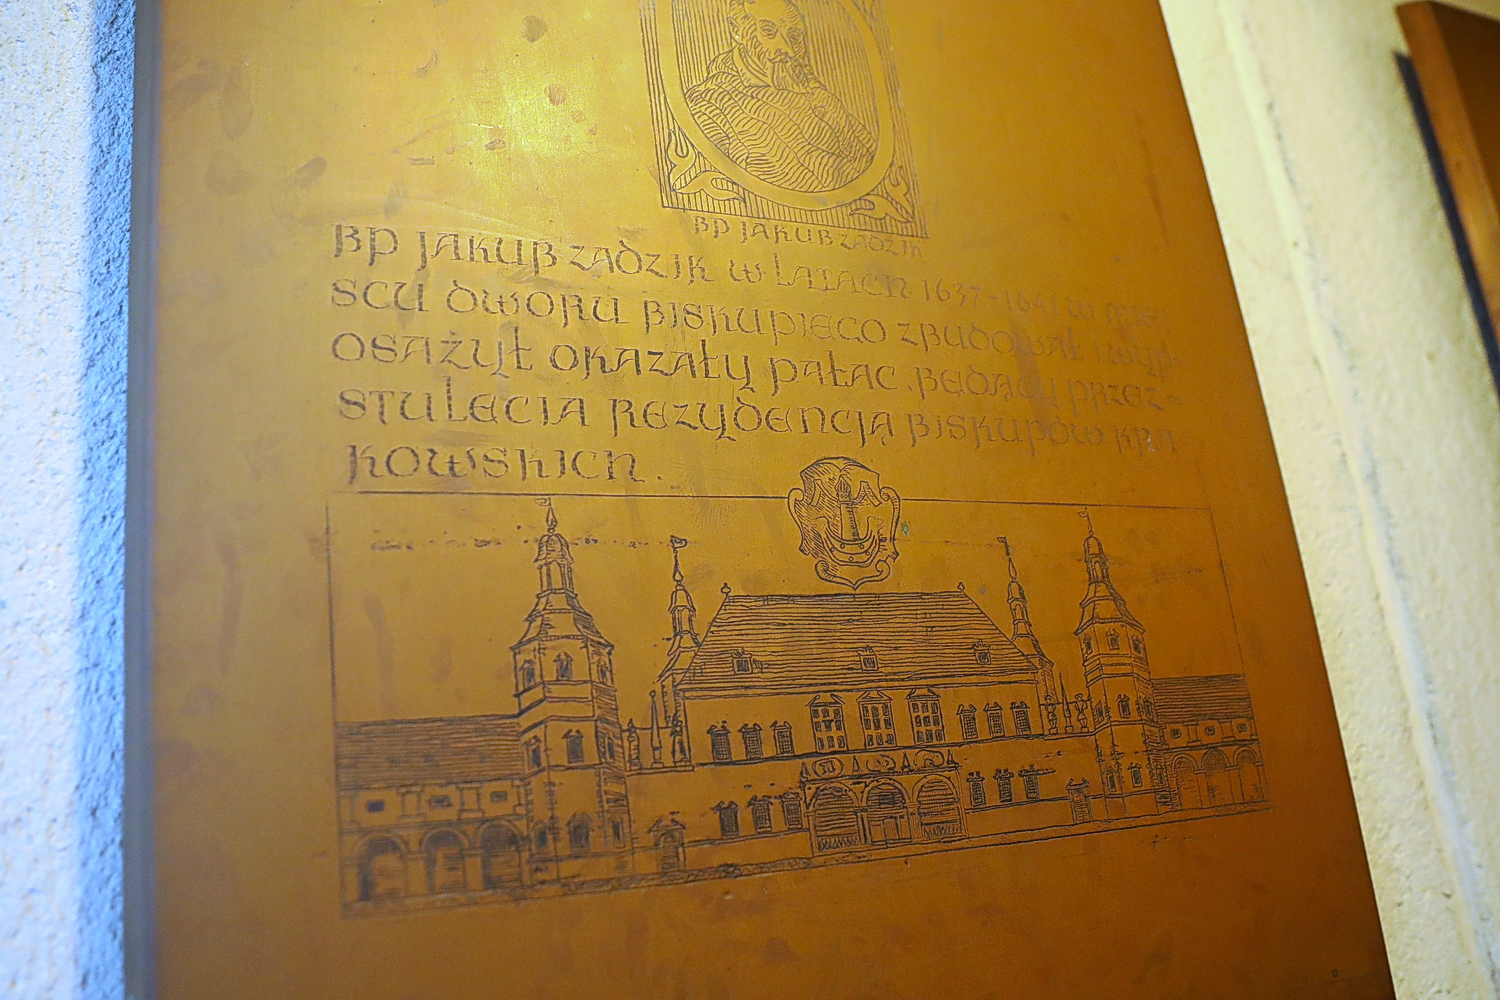 BP JAKUB ZADZIK
BP JAKUB ZADZIK W LATACH 1637-1641 W MIEJ
SCU DWORU BISKUPIEGO ZBUDOWAŁ I WYP
OSAŻYŁ OKAZAŁY PAŁAC. BĘDĄCY PRZEZ
STULECIA REZYDENCJĄ BISKUPÓW KRA
KOWSKICH.